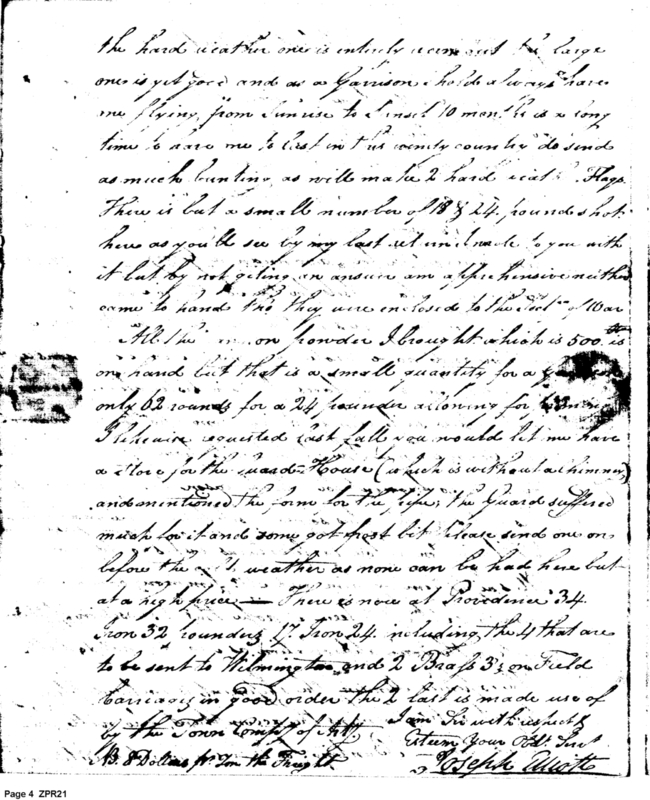 the hard weather one is entirely worn out the large
one is yet good and as a Garrison should always have
one flying from Sunrise to Sunset 10 months is a long
time to have one to last in this windy country do send
as much bunting as will make 2 hard weath. Flags.
There is but a small number of 18 & 24 pound shot
here as you'll see by my last return made to you with
it but by not geting an answer am apprehensive neither
came to hand tho they were enclosed to the Sect. of War
All the powder I brought which is 500 lb is
on hand but that is a small quantity for a
only 62 rounds for a 24 pounder allowing for
I likewise requested last fall you would let me have
a Stove for the Guard House (which is without a chimney)
and mentioned the form for the pipe, the Guard suffered
much for it and some got frost bit please send one on
before the weather as none can be had here but
at a high price — There is now at Providence 34
Iron 32 Pounders 17 Iron 24 including the 4 that are
to be sent to Wilmington and 2 Brass 3s on Field
Carriages in good order the 2 last is made use of
by the Town Compy of Arty I am Sir with respect &
Esteem Your Obdt. Servt.
NB. 8 Dollars pr. Ton the Freight Joseph
Page 4 ZPR21